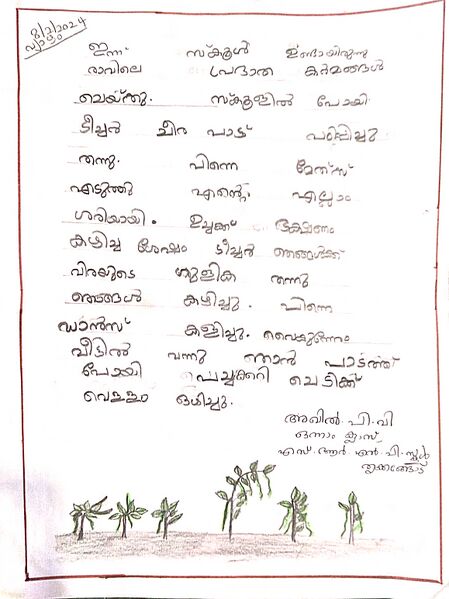 8/2/2024
വ്യാഴം
ഇന്ന് സ്കൂൾ ഉണ്ടായിരുന്നു
രാവിലെ പ്രഭാത കർമങ്ങൾ
ചെയ്തു. സ്കൂളിൽ പോയി
ടീച്ചർ ചീര പാട്ട് പഠിപ്പിച്ചു
തന്നു. പിന്നെ മേത്സ്
എടുത്തു എന്റെ എല്ലാം
ശരിയായി. ഉച്ചക്ക് ഭക്ഷണം
കഴിച്ച ശേഷം ടീച്ചർ ഞങ്ങൾക്ക്
വിരയുടെ ഗുളിക തന്നു
ഞങ്ങൾ കഴിച്ചു. പിന്നെ
ഡാൻസ് കളിച്ചു. വൈകുന്നേരം
വീട്ടിൽ വന്നു ഞാൻ പാടത്ത്
പോയി പച്ചക്കറി ചെടിക്ക്
വെള്ളം ഒഴിച്ചു.
അഖിൽ.പി.വി
ഒന്നാം ക്ലാസ്
എസ്.ആർ.എൻ.പി.സ്കൂൾ